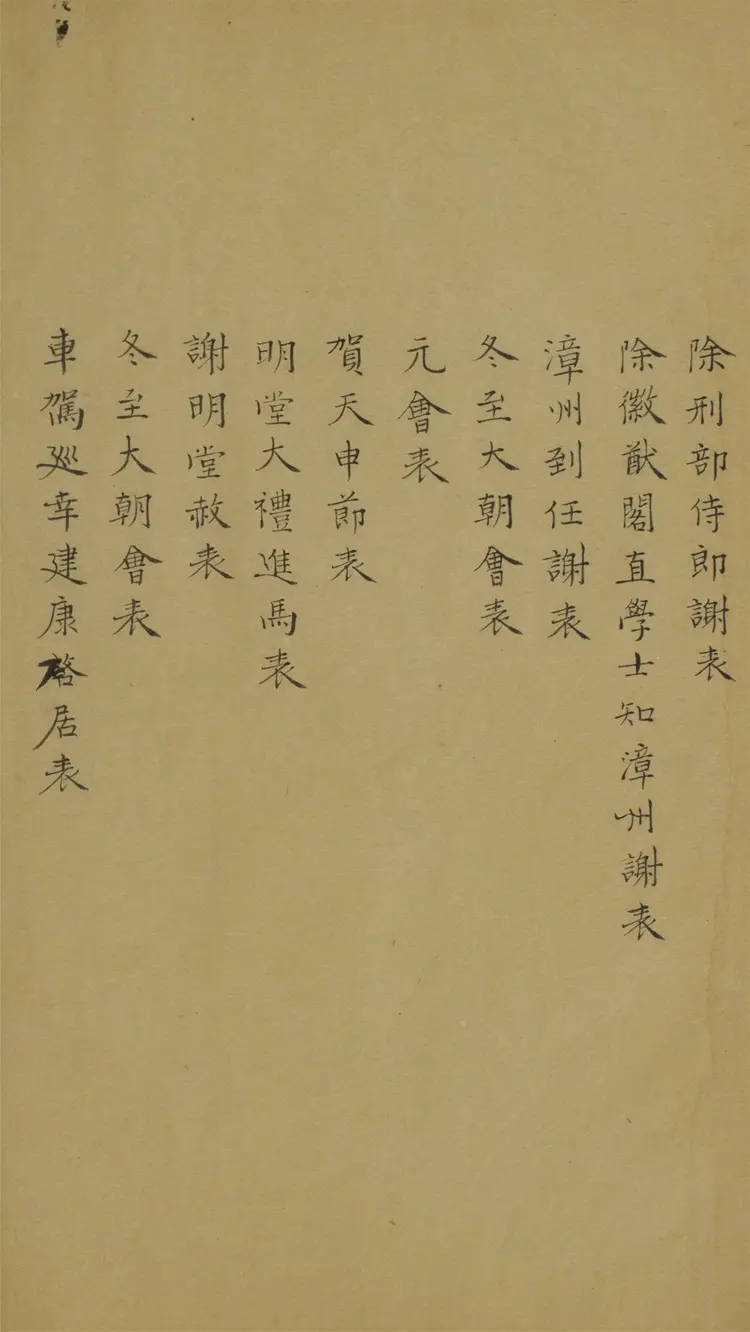 除刑部侍郎謝表
除徽猷閣直學士知漳州謝表
漳州到任謝表
冬至大朝會表
元會表
賀天申節表
明堂大禮進馬表
謝明堂赦表
冬至大朝會表
車駕廵幸建康啓居表